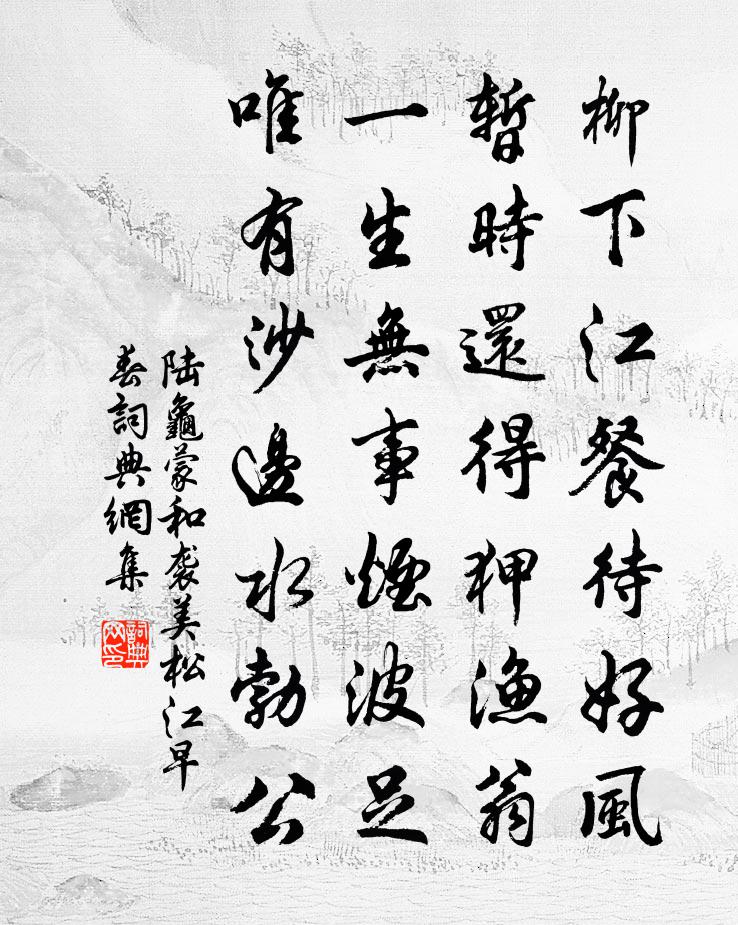 柳下江餐待好風
暫時還得狎漁翁
一生無事煙波足
唯有沙邊水勃公
陆龜蒙和袭美松江早
春詞典網集
詞典网印